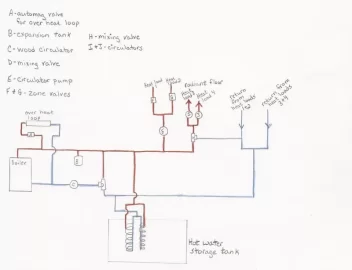 A-automag valve
for over heat loop
B-expansion tank
C-wood circulator
D-mixing valve
E-circulator pump
F & G-zone valves
H-mixing valve
I+I-circulators
over heat
loop
Boiler
heat load
radiant floor
return
from
heat loads
return from
heat loads
Hot water
storage tank